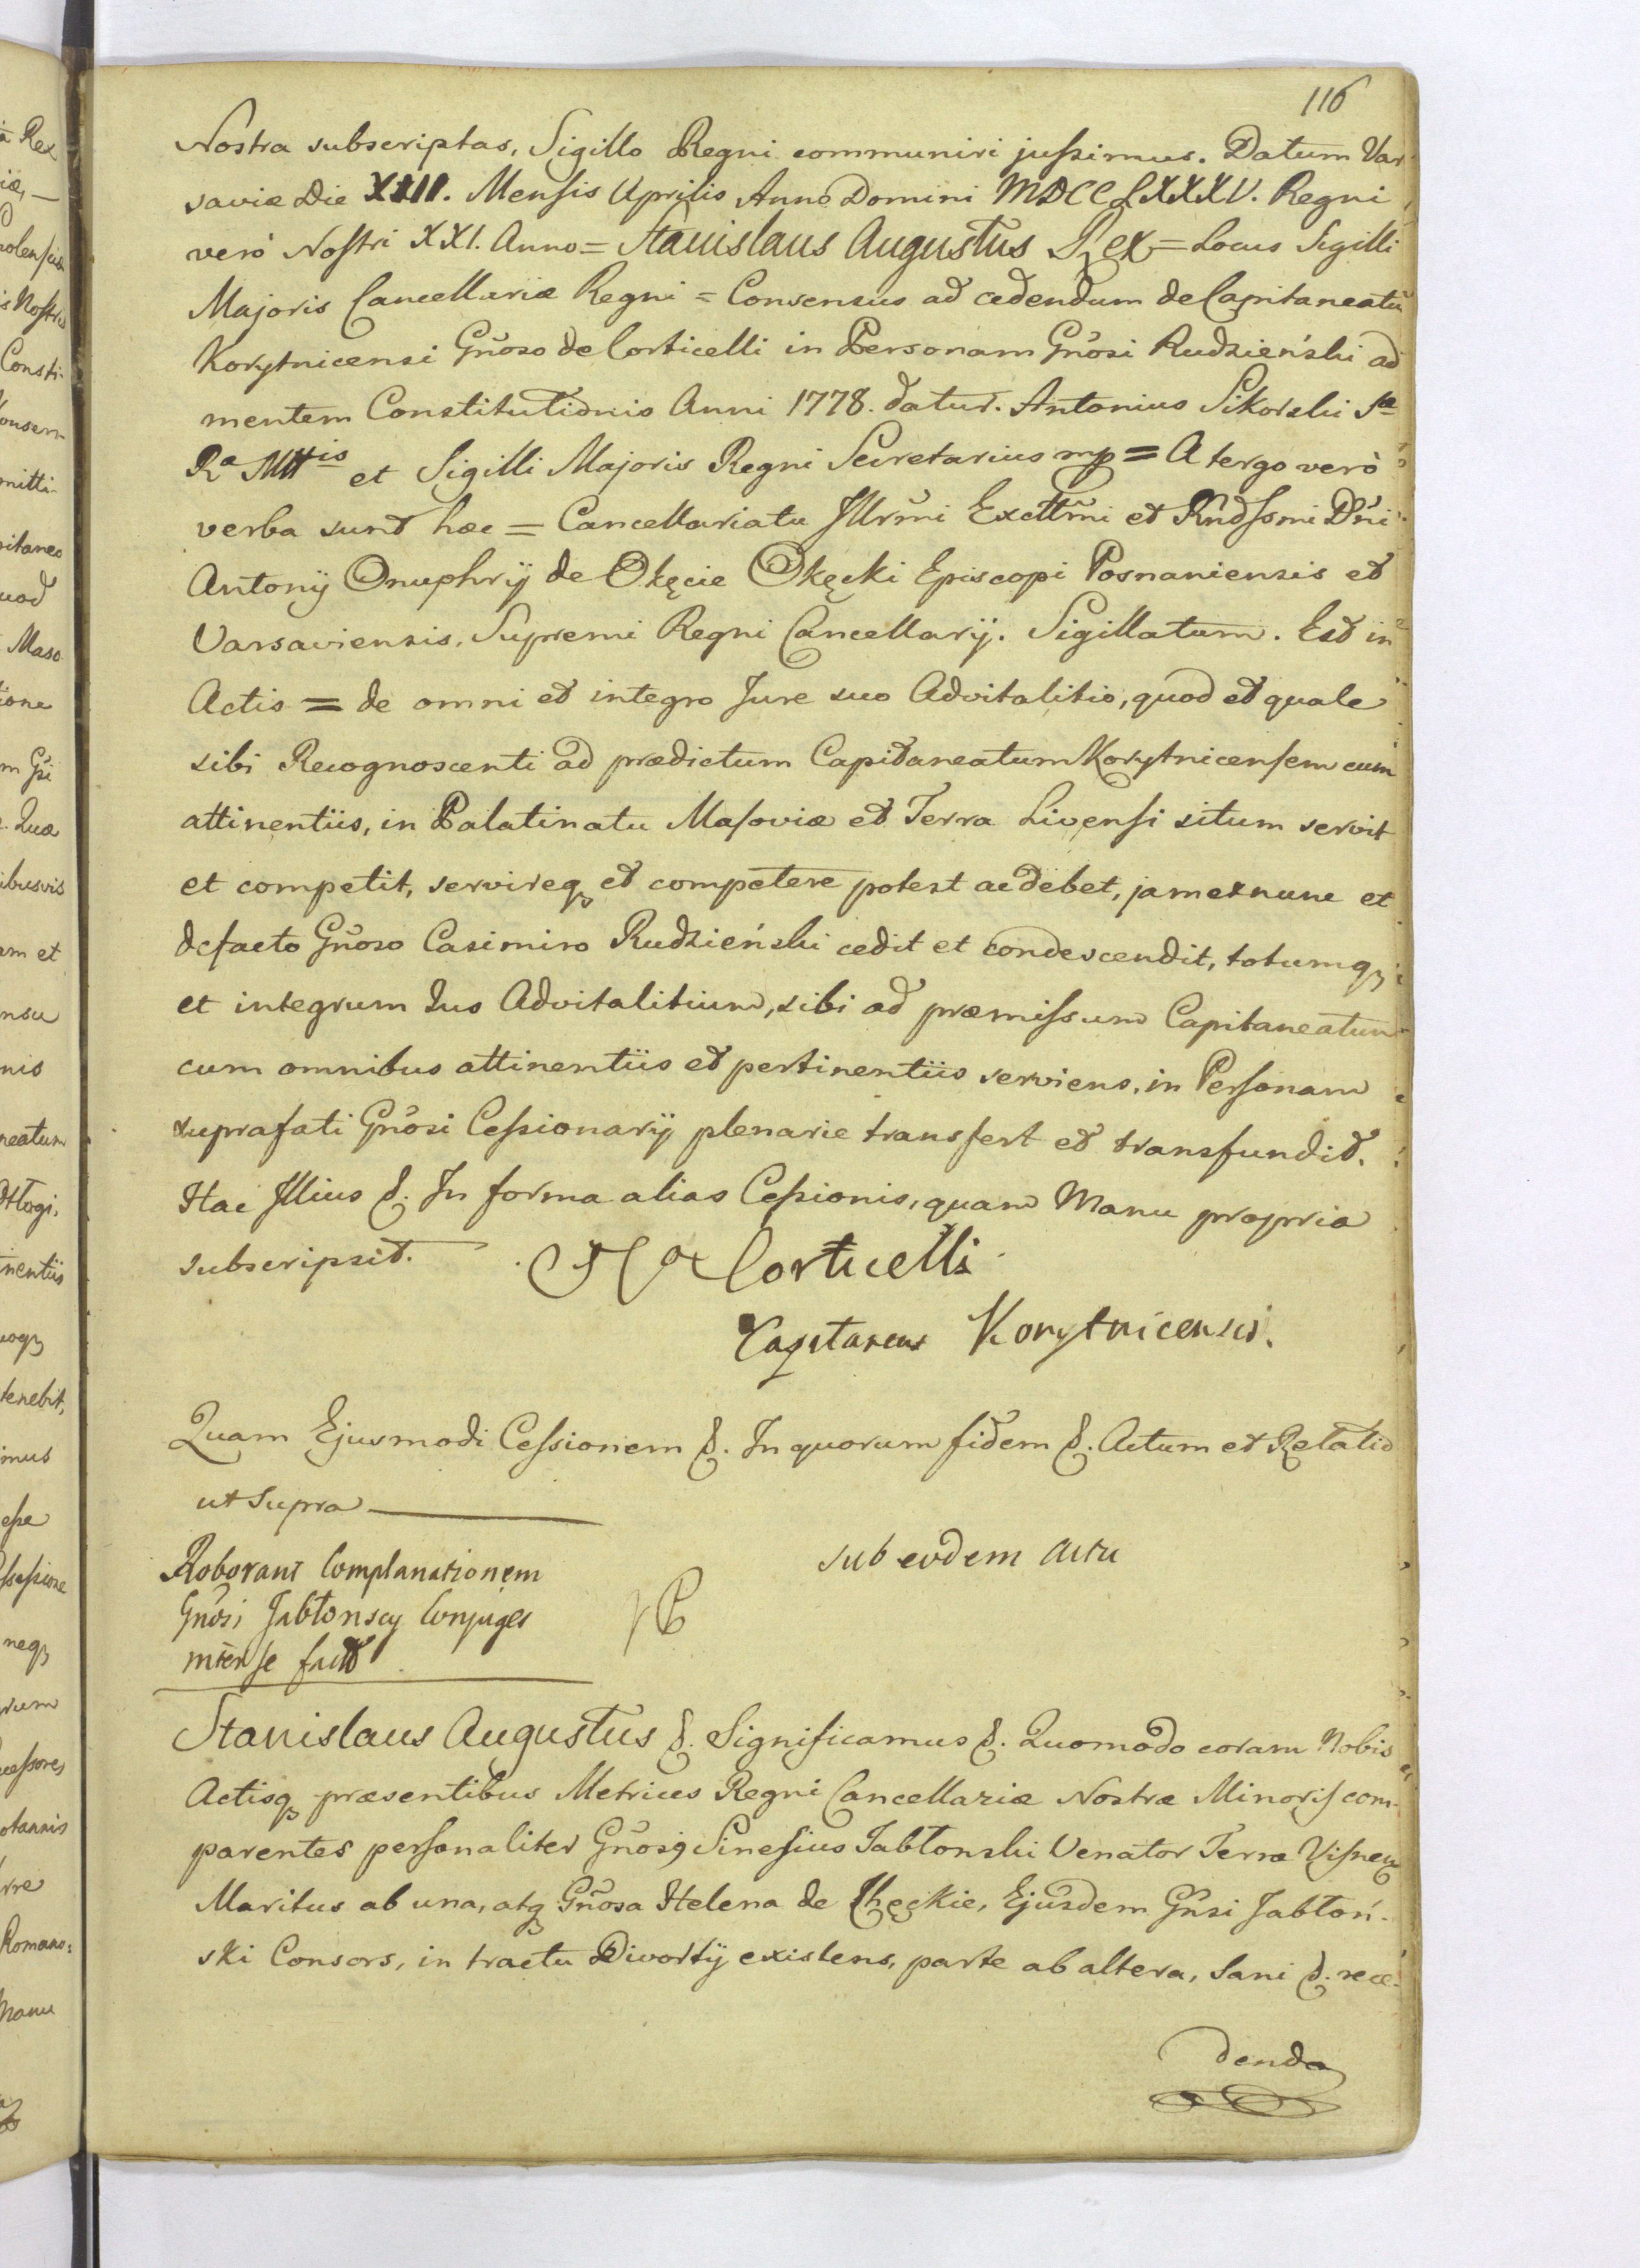 116
Nostra subscriptas, Sigillo Regni communiri jussimus. Datum Var
saviæ Die XIII. Mensis Aprilis Anno Domini MDCCLXXXV. Regni
verò Nostri XXI. Anno = Stanislaus Augustus Rex = Locus Sigilli
Majoris Cancellariæ Regni = Consensus ad cedendum de Capitaneatu
Korytnicensi Gnoso de Corticelli in Personam Gnosi Rudzieński ad
mentem Constitutionis Anni 1778. datur. Antonius Sikorski Sæ
Ra Mttis et Sigilli Majoris Regni Secretarius mp = A tergo verò
verba sunt hæc = Cancellariatu Jllrmi Excttmi et Rndssmi Dni
Antonÿ Onuphrÿ de Okęcie Okęcki Episcopi Posnaniensis et
Varsaviensis, Supremi Regni Cancellarÿ. Sigillatum. Est in
Actis = de omni et integro Jure suo Advitalitio, quod et quale
sibi Recognoscenti ad prædictum Capitaneatum Korytnicensem cum
attinentiis, in Palatinatu Masoviæ et Terra Livensi situm servit
et competit, servireq et competere potest ac debet, jam ex nunc et
defacto Gnoso Casimiro Rudzieński cedit et condescendit, totumq
et integrum Jus Advitalitium, sibi ad præmissum Capitaneatum
cum omnibus attinentiis et pertinentiis serviens, in Personam
suprafati Gnosi Cessionarÿ plenarie transfert et transfundit.
Hac Jllius &. In forma alias Cessionis, quam Manu propria
subscripsit. Corticelli
Capitaneus Korytnicensis.
Quam Ejusmodi Cessionem &. In quorum fidem &. Actum et Relatio
ut Supra
Roborant Complanationem
Gnosi Jabłonscy Conjuges
inter se factt
sub eodem actu
Stanislaus Augustus &. Significamus &. Quomodo coram Nobis
Actisq præsentibus Metrices Regni Cancellariæ Nostræ Minoris com-
parentes personaliter Gnosi Sinesius Jabłonski Venator Terræ Visnen
Maritus ab una, atq Gnosa Helena de Chęckie, Ejusdem Gnsi Jabłoń-
ski Consors, in tractu Divortÿ existens, parte ab altera, Sani &. rece-
denda